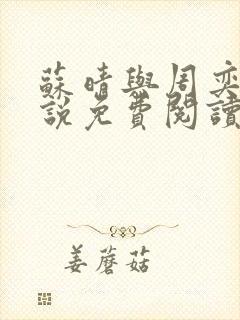 蘇晴與周奕
說免費閱讀
姜蘑菇